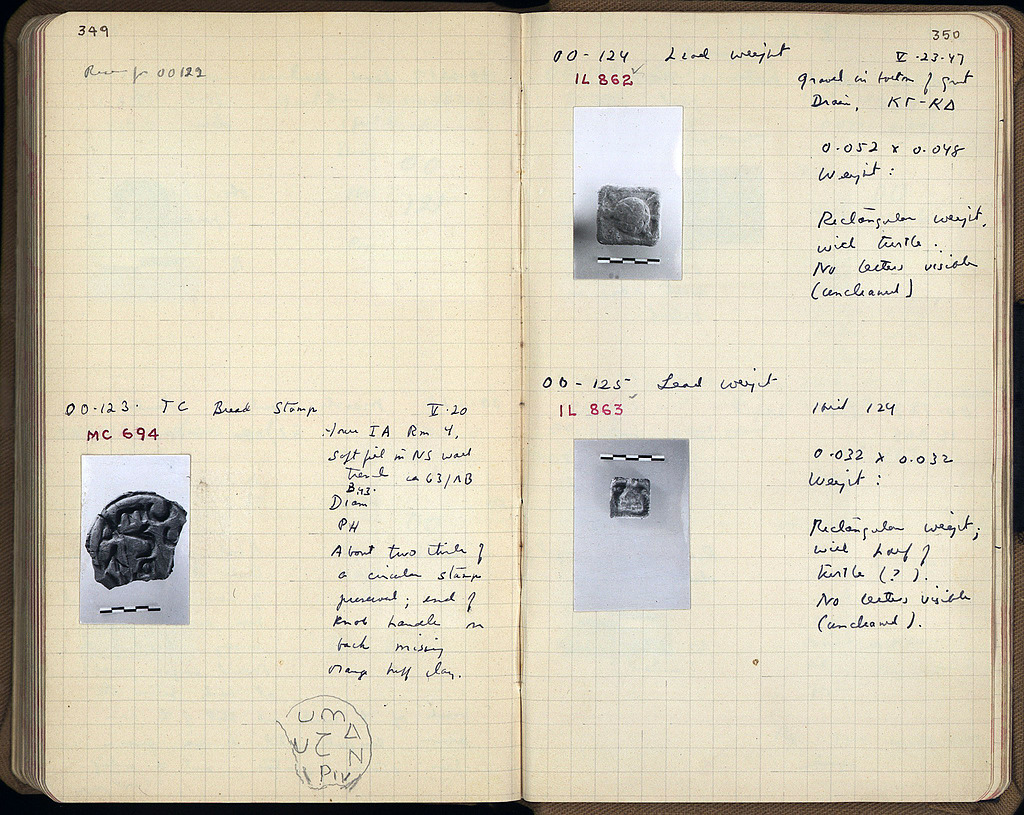 349
00122
00-123. TC Bread Stamp V.20
MC 694
House IA Rm 4,
Soft fill in NS wall
trench ca 63/ΛB
Diam
PH
About two thirds of
a circular stamp
preserved; end of
knob handle on
back missing
Orange buff clay.
350
00-124 Lead weight V.23.47
IL 862
Gravel in bottom of great
Drain, ΚΓ-ΚΔ
0.052 x 0.048
Weight:
Rectangular weight,
with turtle.
No letters visible
(uncleaned)
00-125 Lead weight
IL 863
With 124
0.032 x 0.032
Weight:
Rectangular weight;
with half of
turtle (?).
No letters visible
(uncleaned).